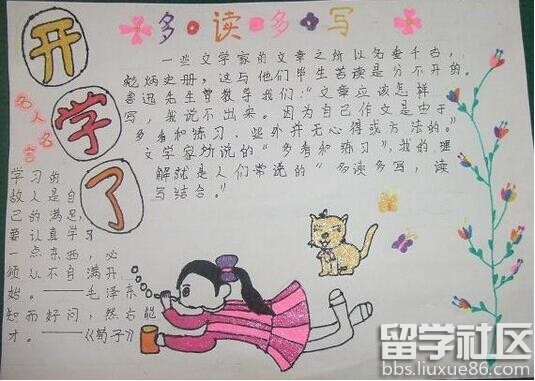 开学了
多·读·多·写
一些文学家的文章之所以名垂千古，
彪炳史册，这与他们毕生苦读是分不开的。
鲁迅先生曾教导我们："文章应该怎样
写，我说不出来。因为自己作文是由于
多看和练习，此外并无心得或方法的。"
文学家所说的"多看和练习"，我的理
解就是人们常说的"多读多写，读
写结合。"
名人名言
学习的
敌人是自
己的满足，
要认真学习
一点东西，必
须从不自满开
始。——毛泽东
知而好问，然后能
才。——《荀子》
留学社区
bbs.liuxue86.com